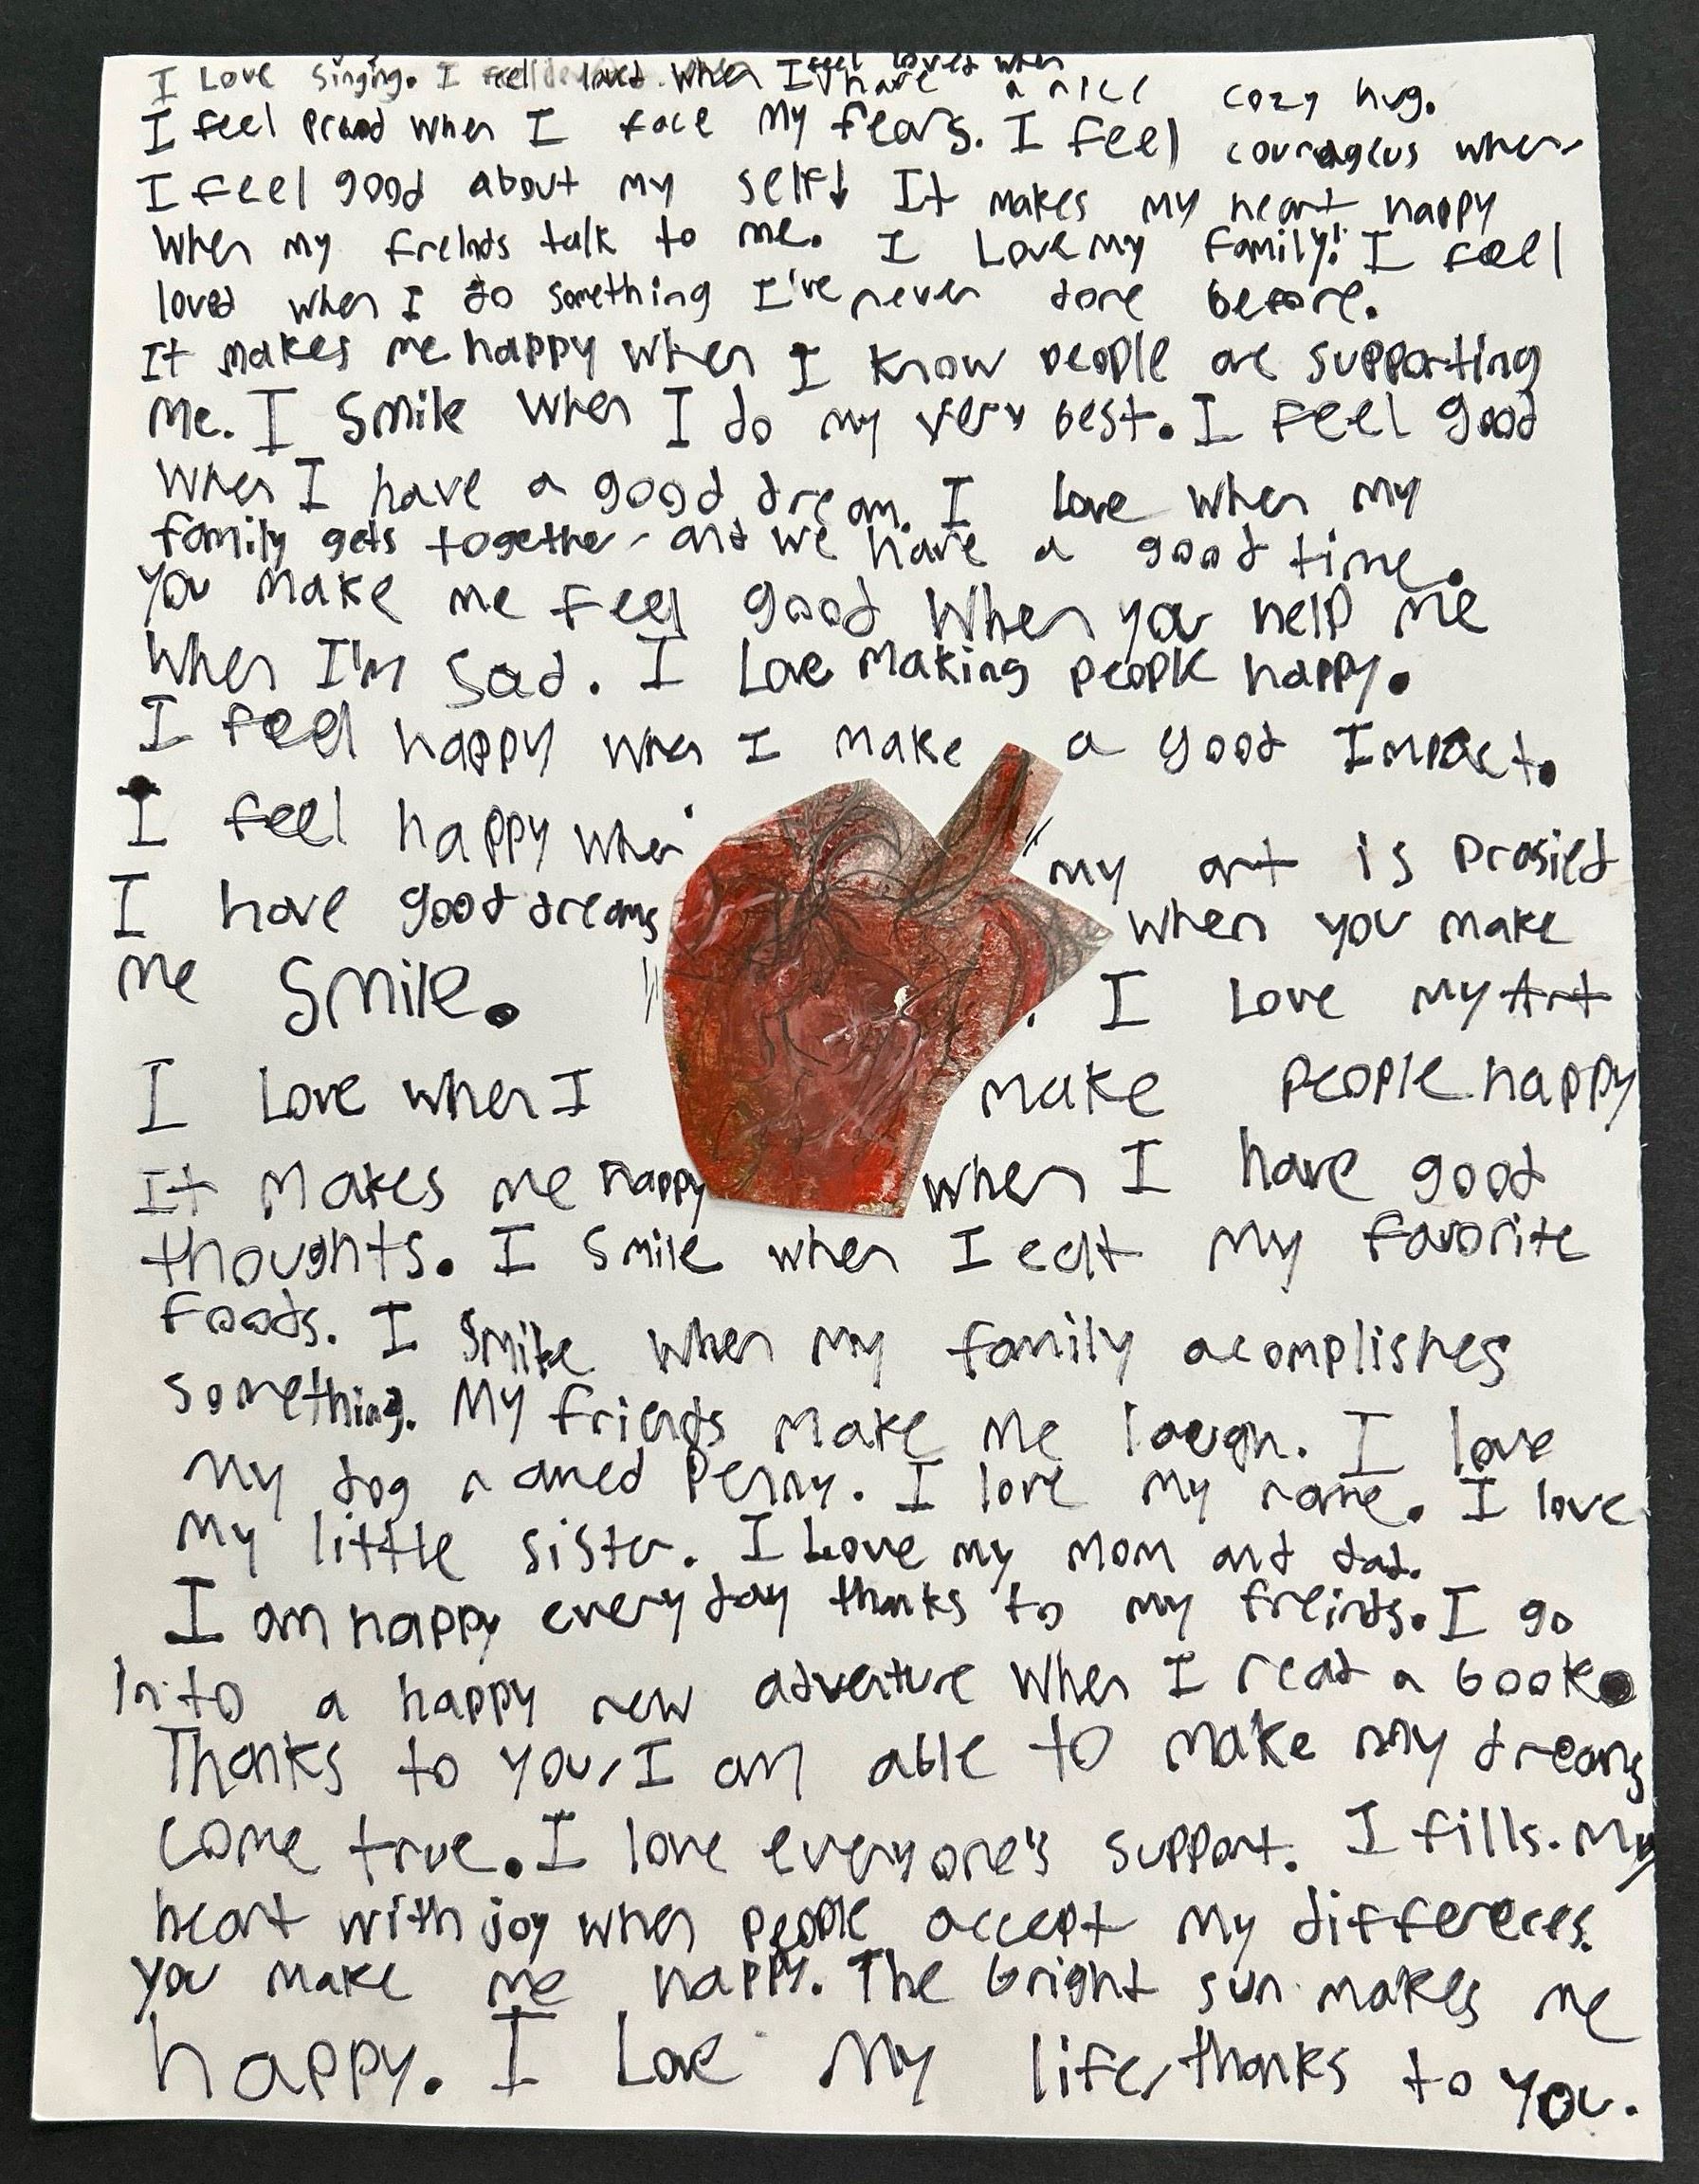 I Love Singing. I feel loved when I feel loved when
I have a nice cozy hug.
I feel proud when I face my fears. I feel courageus when
I feel good about my self! It makes my heart happy
when my freinds talk to me. I Love my family! I feel
loved when I do something I've never done before.
It makes me happy when I know people are supporting
me. I smile when I do my very best. I feel good
when I have a good dream. I love when my
family gets together and we have a good time.
You make me feel good When you help me
when I'm sad. I Love making people happy.
I feel happy when I make a good Impact.
I feel happy when my art is prasied
I have good dreams when you make
me smile. I Love my Art
I Love when I make people happy
It makes me happy when I have good
thoughts. I smile when I eat my favorite
foods. I smile when my family acomplishes
something. My friends make me laugh. I love
my dog named Penny. I love my name. I love
my little sister. I Love my mom and dad.
I am happy every day thanks to my freinds. I go
Into a happy new adventure when I read a book.
Thanks to you, I am able to make my dreams
come true. I love everyone's support. I fills. my
heart with joy when people accept my differeces.
You make me happy. The bright sun makes me
happy. I Love my life, thanks to you.